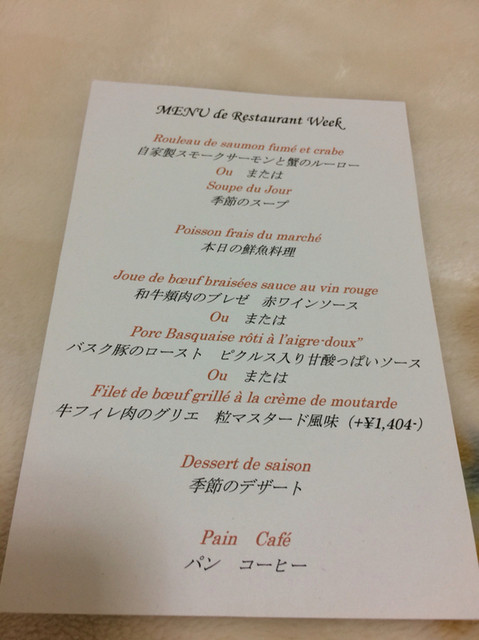 MENU de Restaurant Week
Rouleau de saumon fumé et crabe
自家製スモークサーモンと蟹のルーロー
Ou または
Soupe du Jour
季節のスープ
Poisson frais du marché
本日の鮮魚料理
Joue de bœuf braisées sauce au vin rouge
和牛頬肉のブレゼ 赤ワインソース
Ou または
Porc Basquaise rôti à l'aigre-doux”
バスク豚のロースト ピクルス入り甘酸っぱいソース
Ou または
Filet de bœuf grillé à la crème de moutarde
牛フィレ肉のグリエ 粒マスタード風味 (+¥1,404-)
Dessert de saison
季節のデザート
Pain Café
パン コーヒー